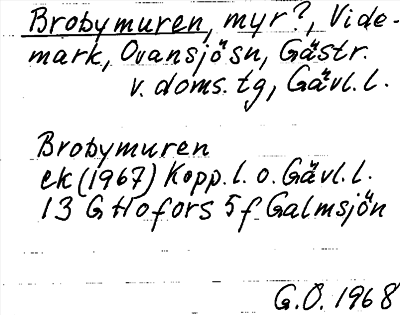 Brobymuren, myr?, Vide-
mark, Ovansjö sn, Gästr.
v. doms. tg, Gävl. l.
Brobymuren
ek (1967) Kopp. l. o. Gävl. l.
13 G Hofors 5 f Galmsjön
G.O. 1968